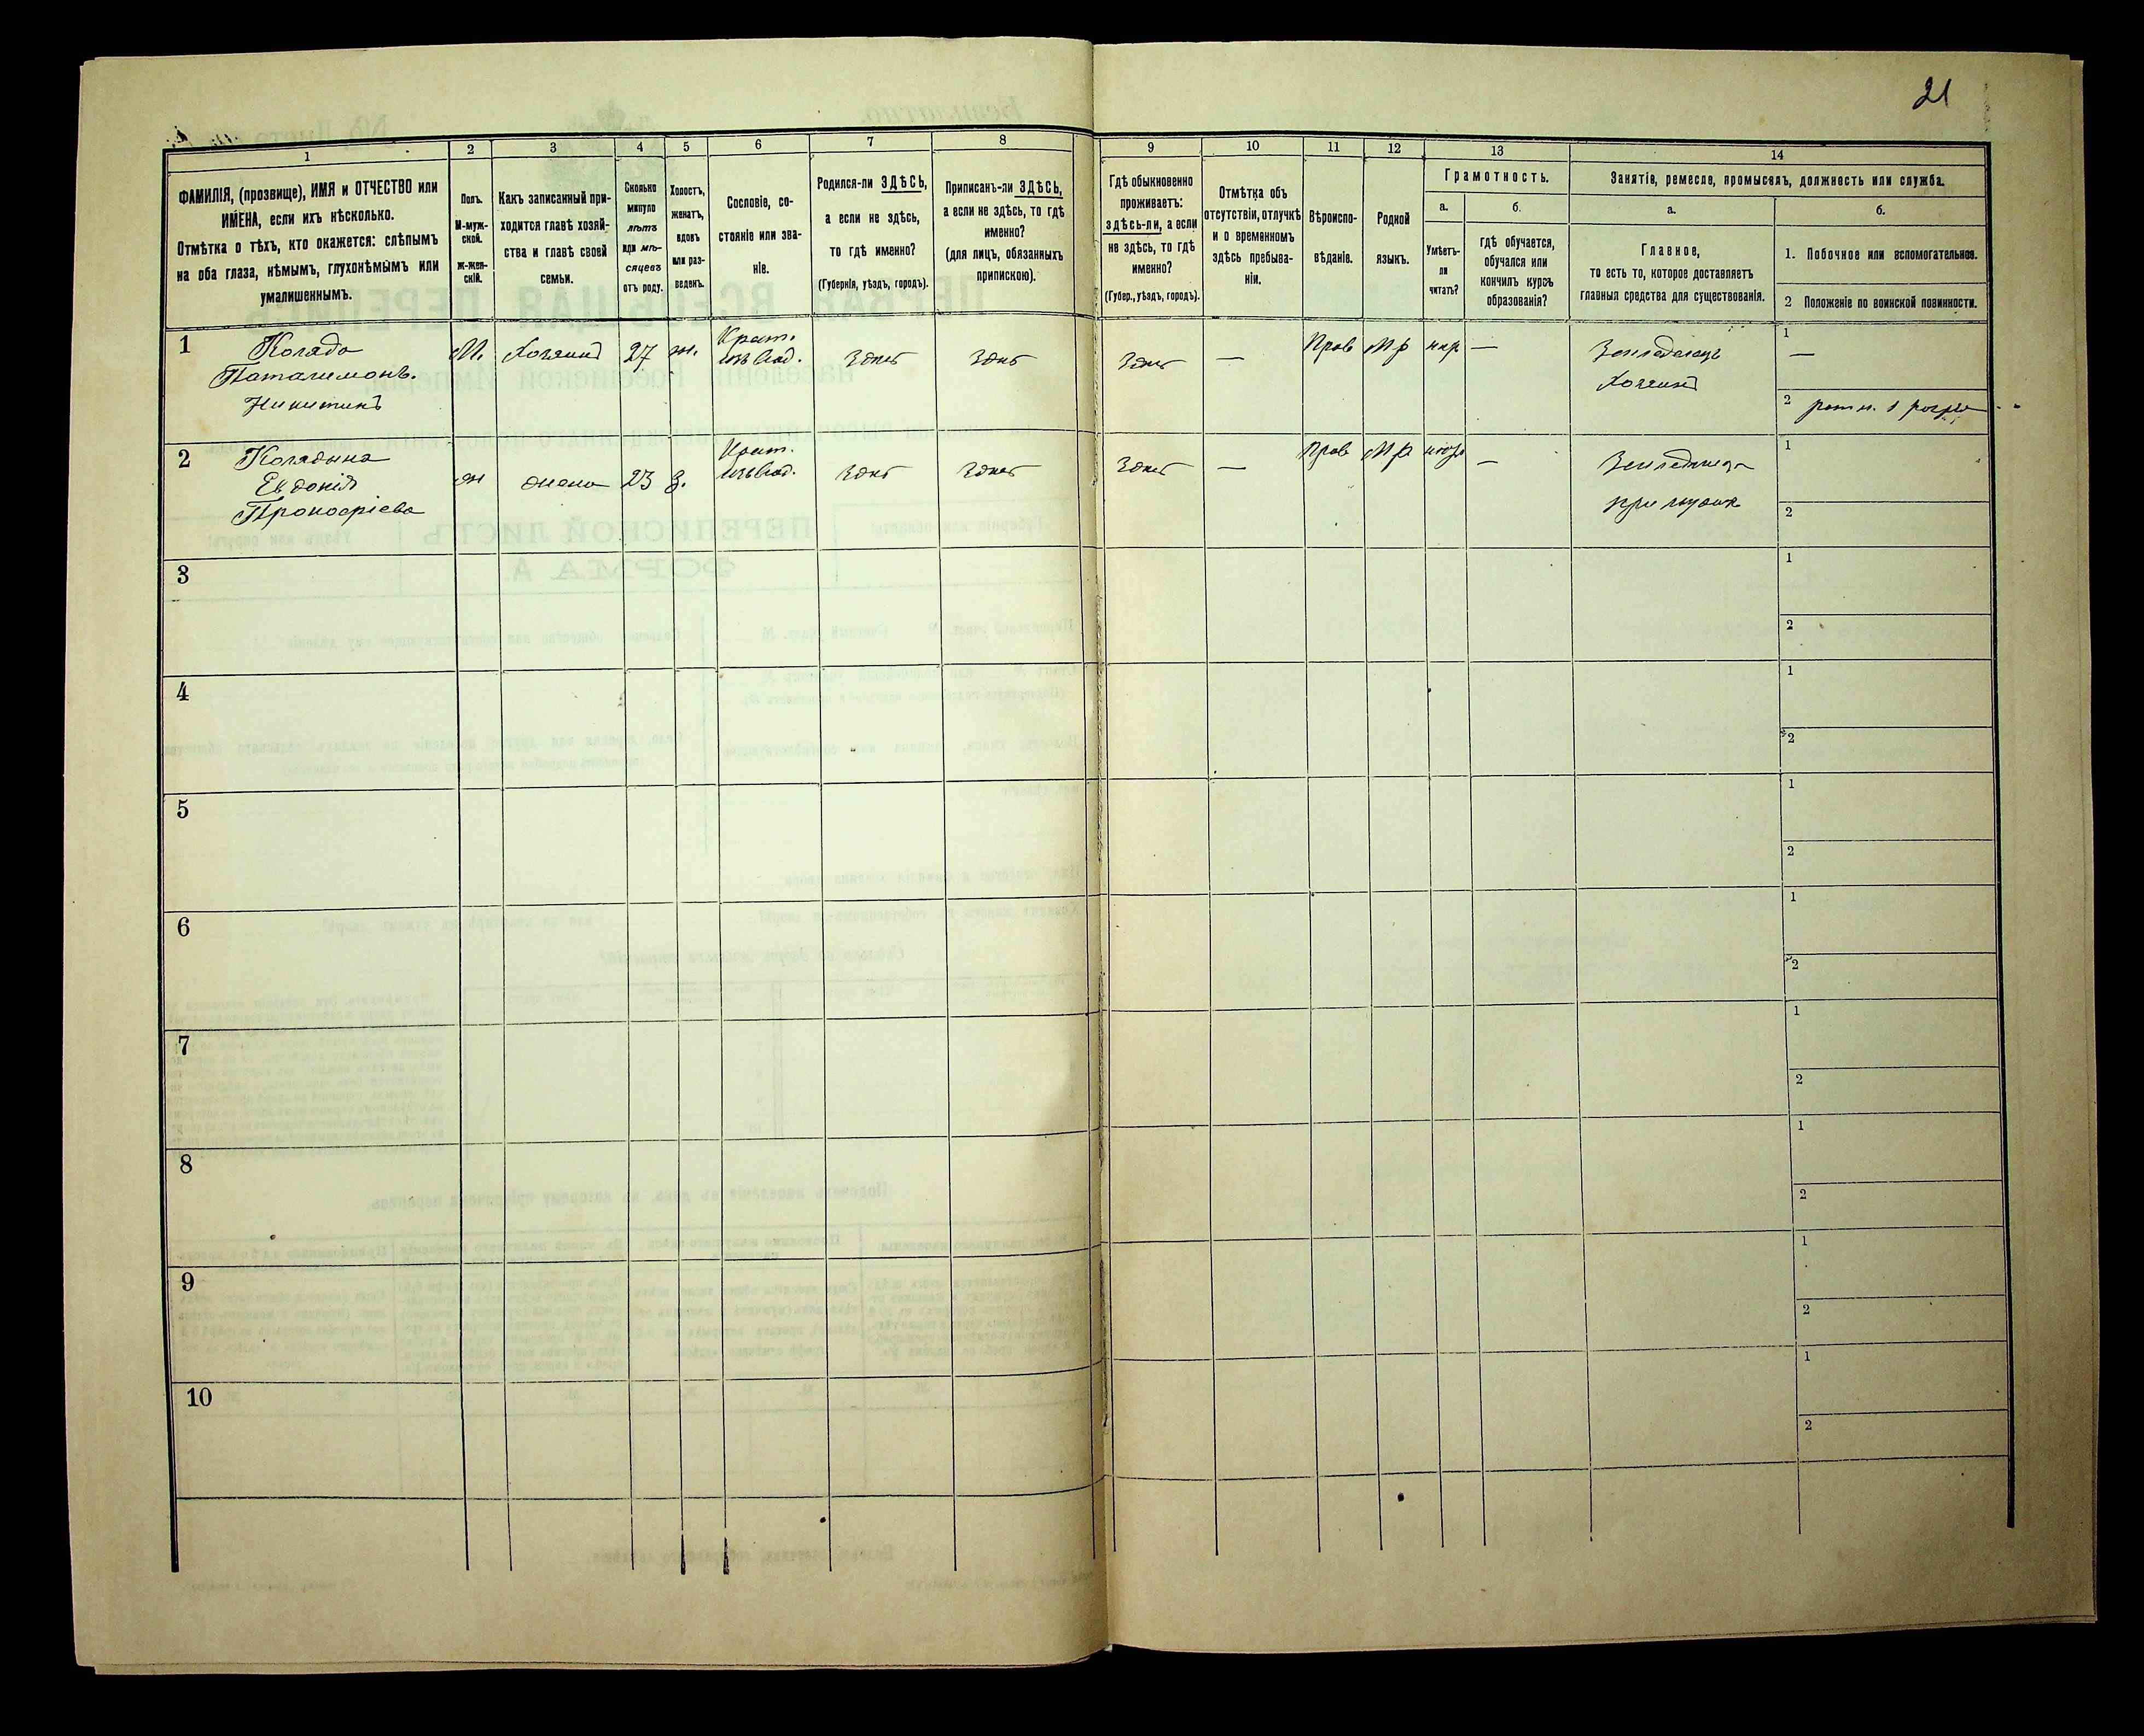 21
1 2 3 4 5 6 7 8 9 10 11 12 13 14
ФАМИЛІЯ, (прозвище), ИМЯ и ОТЧЕСТВО или
ИМЕНА, если ихъ нѣсколько.
Отмѣтка о тѣхъ, кто окажется: слѣпымъ
на оба глаза, нѣмымъ, глухонѣмымъ или
умалишеннымъ.
Полъ.
М-муж-
ской.
ж-жен-
скій.
Какъ записанный при-
ходится главѣ хозяй-
ства и главѣ своей
семьи.
Сколько
минуло
лѣтъ
или мѣ-
сяцевъ
отъ роду.
Холостъ,
женатъ,
вдовъ
или раз-
веденъ.
Сословіе, со-
стояніе или зва-
ніе.
Родился-ли ЗДѢСЬ,
а если не здѣсь,
то гдѣ именно?
(Губернія, уѣздъ, городъ).
Приписанъ-ли ЗДѢСЬ,
а если не здѣсь, то гдѣ
именно?
(для лицъ, обязанныхъ
припискою).
Гдѣ обыкновенно
проживаетъ:
здѣсь-ли, а если
не здѣсь, то гдѣ
именно?
(Губер., уѣздъ, городъ).
Отмѣтка объ
отсутствіи, отлучкѣ
и о временномъ
здѣсь пребыва-
ніи.
Вѣроиспо-
вѣданіе.
Родной
языкъ.
Грамотность.
а.
Умѣетъ-
ли
читать?
б.
гдѣ обучается,
обучался или
кончилъ курсъ
образованія?
Занятіе, ремесло, промыселъ, должность или служба.
а.
Главное,
то есть то, которое доставляетъ
главныя средства для существованія.
б.
1. Побочное или вспомогательное.
2 Положеніе по воинской повинности.
1
Коляда
Паталимонъ
Никитинъ
М. Хозяинъ 27 ж.
Крест.
Здесь Здесь Здесь — Прав Мр нгр —
Земледелецъ
Хозяинъ
1 —
2
2
Колядина
Евдокія
Прокофіева
ж жена 23 з.
Крест.
Здесь Здесь Здесь — Прав Мр негр —
при мужѣ
1
2
3
1
2
4
1
2
5
1
2
6
1
2
7
1
2
8
1
2
9
1
2
10
1
2